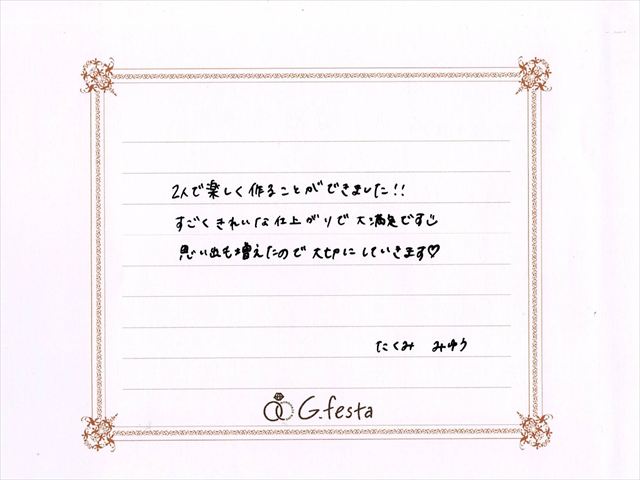 2人で楽しく作ることができました!!
すごくきれいな仕上がりで大満足です
思い出も増えたので大切にしていきます♡
たくみ みゆう
G.festa